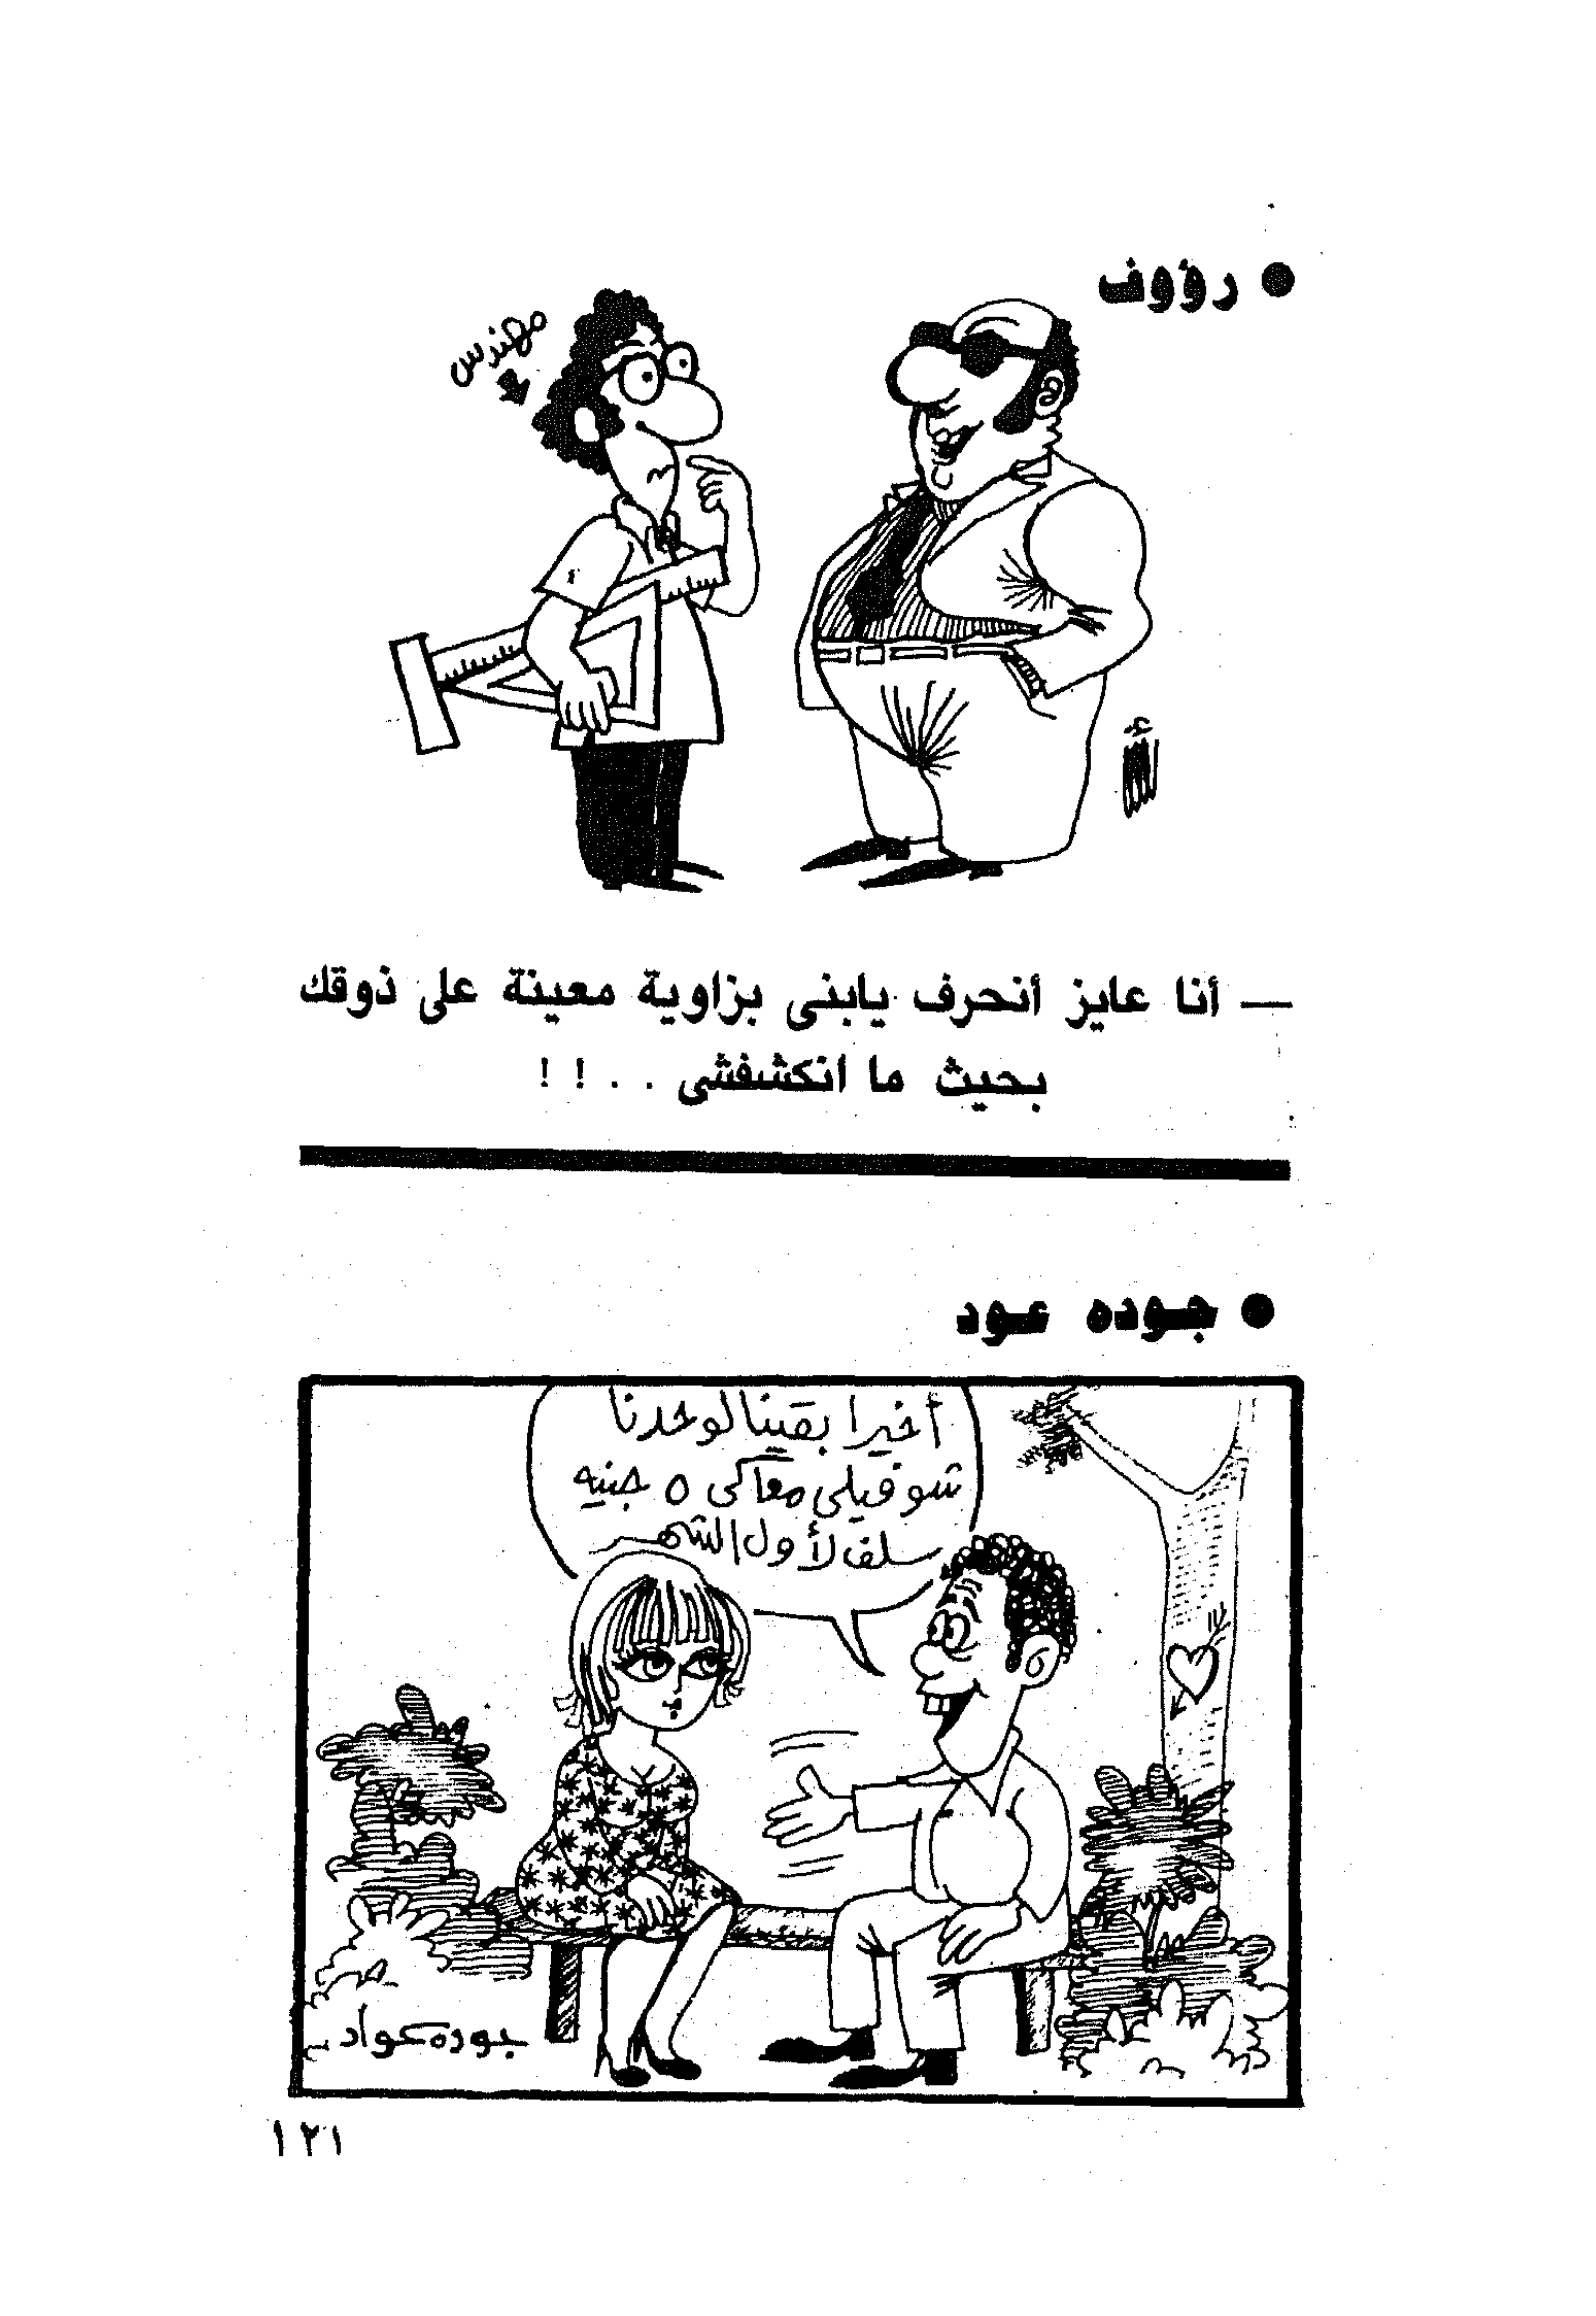 ● رؤوف
مهندس
— أنا عايز أنحرف يابنى بزاوية معينة على ذوقك
بحيث ما انكشفشى . . ! !
● جوده عود
أخيرا بقينا لوحدنا
شوفيلى معاكى ٥ جنيه
سلف لأول الشهر
جوده عواد
١٢١